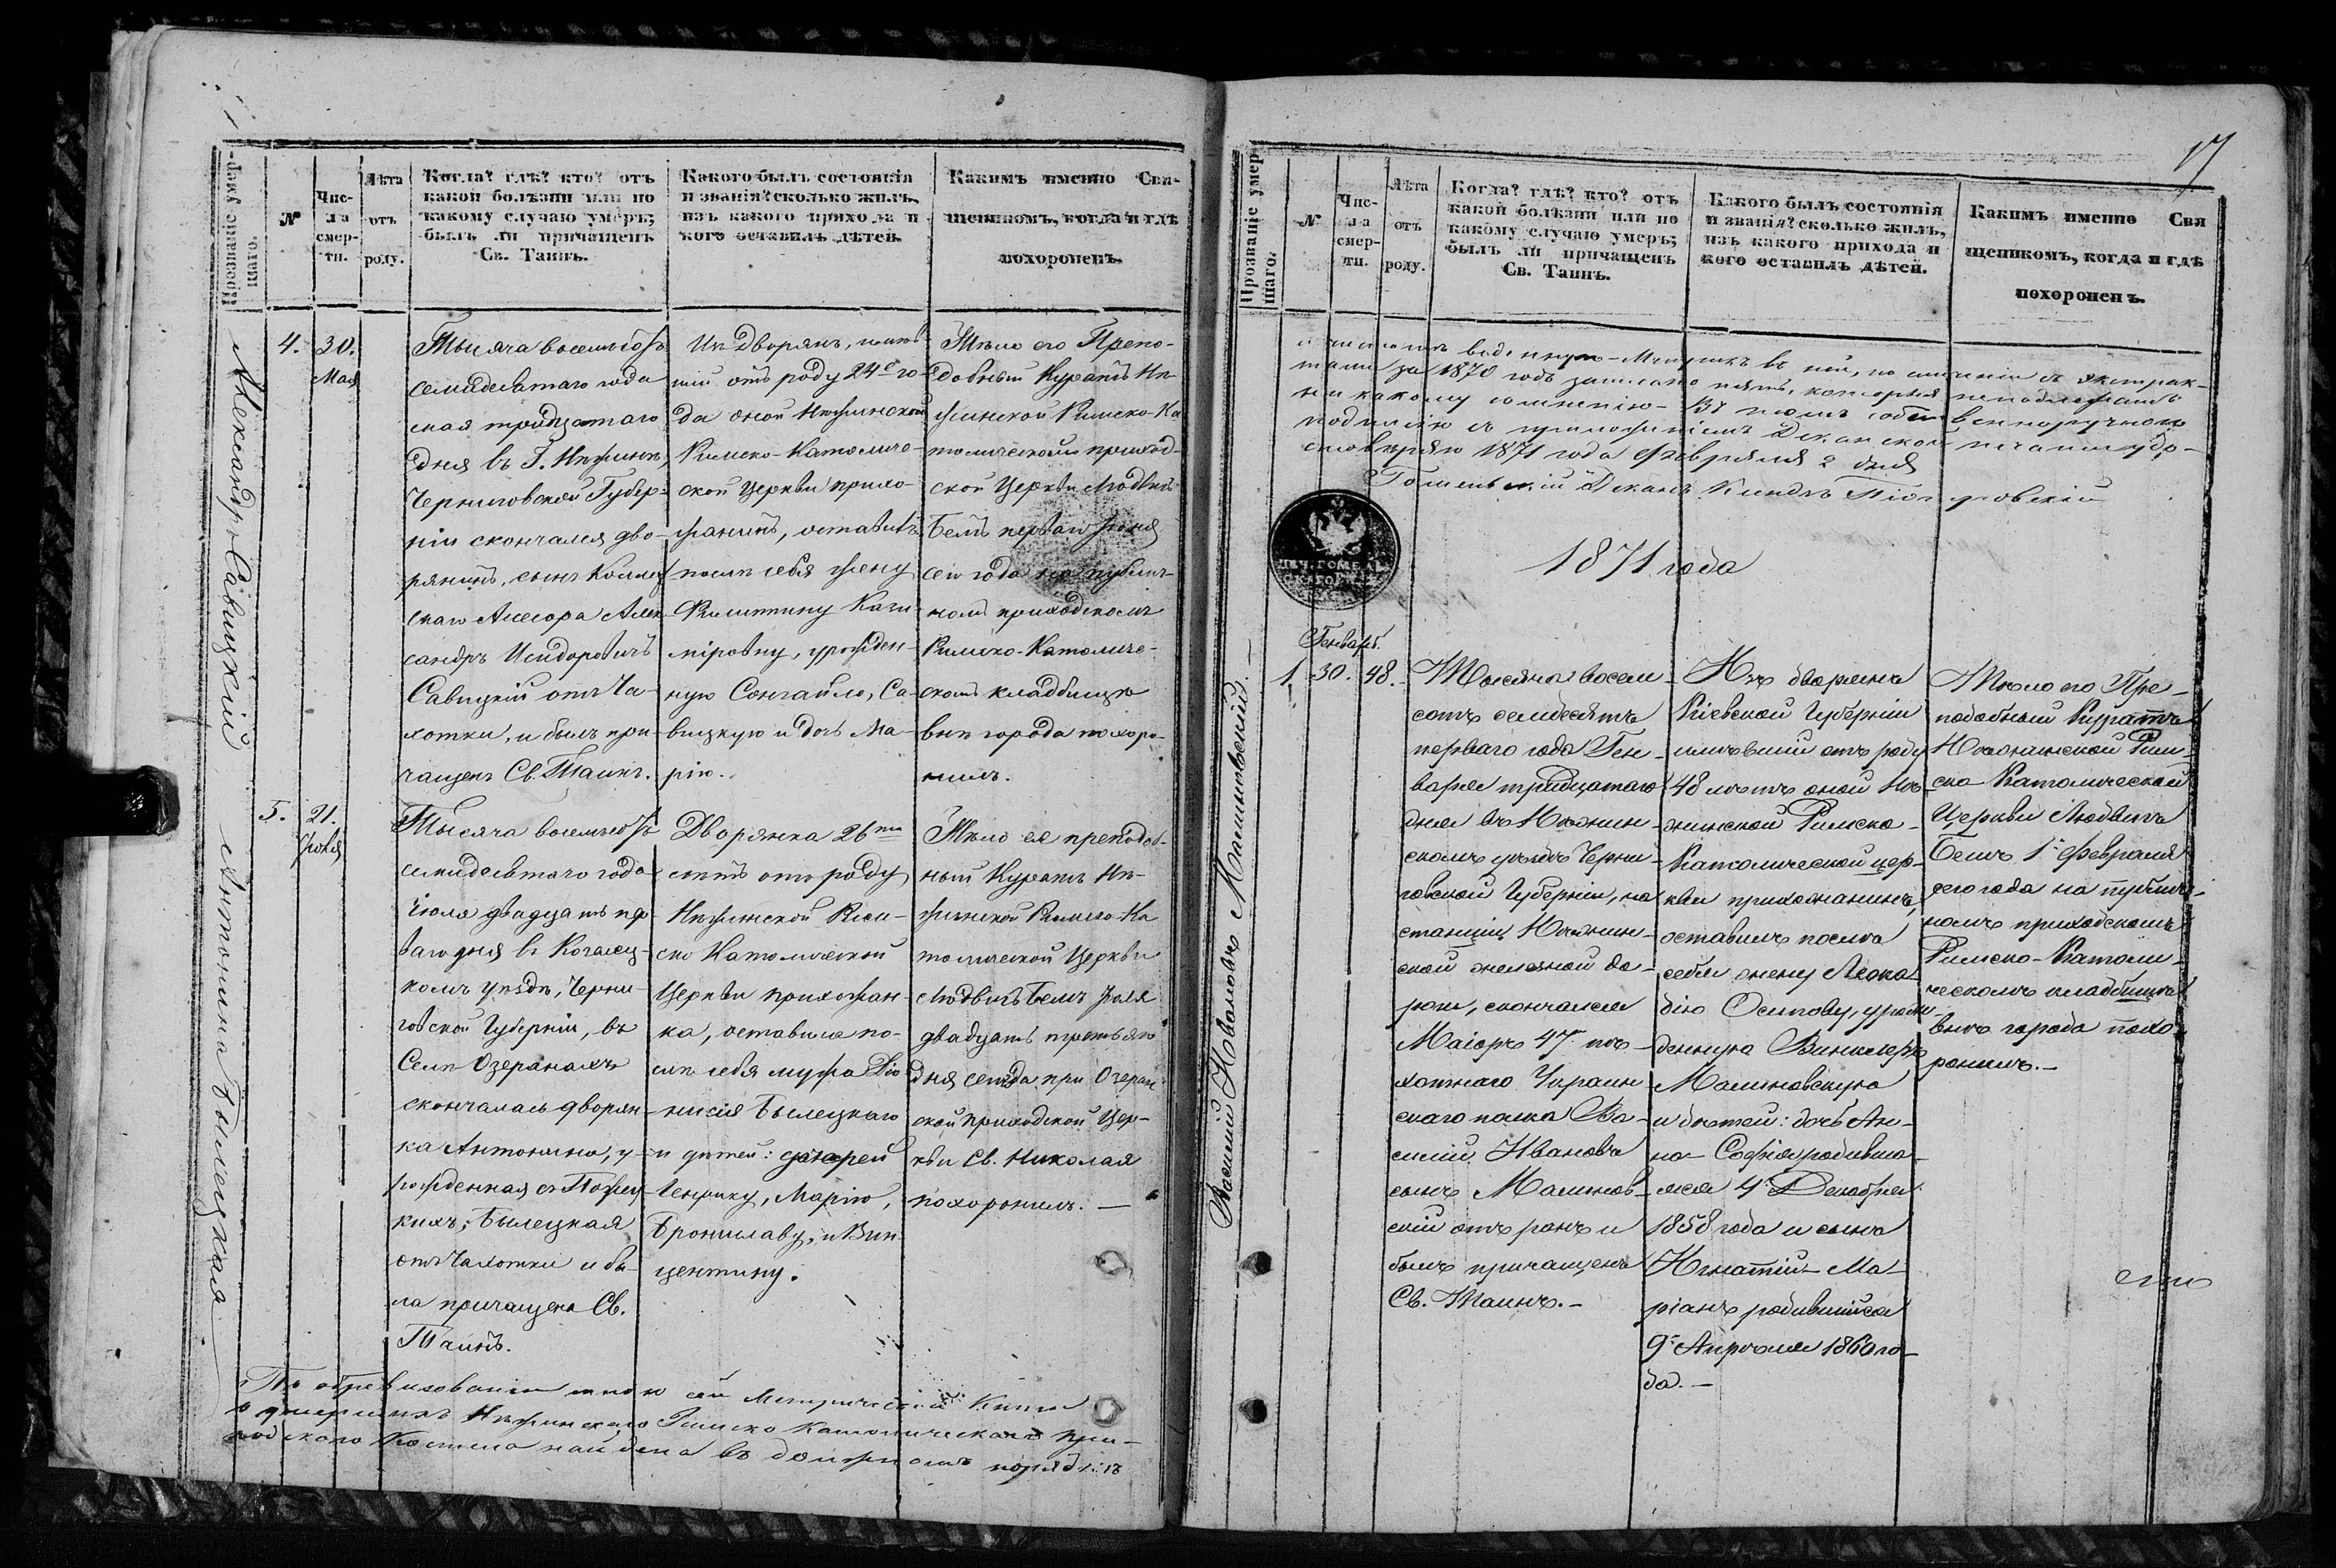 Прозваніе умер-
шаго.
№
Чис-
ла
смер-
ти.
Лѣта
отъ
роду.
Когда? гдѣ? кто? отъ
какой болѣзни или по
какому случаю умеръ;
былъ ли причащенъ
Св. Таинъ.
Какого былъ состоянія
и званія? сколько жилъ,
изъ какого прихода и
кого оставилъ дѣтей.
Какимъ именно Свя-
щенникомъ, когда и гдѣ
похороненъ.
Александръ Савицкій
4.
30.
Мая
Тысяча восемьсотъ
семидесятаго года
мая тридцатаго
дня въ Г. Нѣжинѣ,
Черниговской Губер-
ніи скончался дво-
рянинъ, сынъ Коллеж
скаго Асесора Алек
сандръ Исидоровичъ
Савицкій отъ Ча-
хотки, и былъ при
чащенъ Св. Таинъ.
Изъ Дворянъ, имѣв
шій отъ роду 24 го-
да оной Нѣжинской
Римско-Католиче-
ской Церкви прихо-
жанинъ, оставилъ
послѣ себя жену
Филипину Кази-
міровну, урожден-
ную Сонгайло, Са-
вицкую и дочь Ма-
рію.
Тѣло его Препо-
добный Куратъ Нѣ-
жинской Римско-Ка
толической приход-
ской Церкви Людвикъ
Бемъ перваго Іюня
сего года на публич-
номъ приходскомъ
Римско-Католиче-
скомъ кладбищѣ
внѣ города похоро-
нилъ.
Антонина Былецкая
5.
21.
Іюля
Тысяча восемьсотъ
семидесятаго года
Іюля двадцать пер
ваго дня въ Козелец-
комъ уѣздѣ, Черни-
говской Губерніи, въ
Селѣ Озерянахъ
скончалась дворян-
ка Антонина, у-
рожденная
Былецкая
отъ Чахотки и бы-
ла причащена Св.
Таинъ.
Дворянка 26ти
лѣтъ отъ роду
Нѣжинской Рим-
ско Католической
Церкви прихожан-
ка, оставила по-
слѣ себя мужа Діо
нисія Былецкаго
и дѣтей: дочерей
Генрику, Марію,
Брониславу, и Вин
центину.
Тѣло ея преподоб-
ный Куратъ Нѣ-
жинской Римско-Ка
толической Церкви
Людвикъ Бемъ Іюля
двадцать третьяго
дня сего года при Озерян
ской приходской Цер-
кви Св. Николая
похоронилъ. —
По обревизованіи мною сей Метрической Книги
о умершихъ Нѣжинскаго Римско Католическаго при-
ходскаго Костела найдена въ должномъ порядкѣ
17
Прозваніе умер
шаго.
№
Чис-
ла
смер-
ти.
Лѣта
отъ
роду.
Когда? гдѣ? кто? отъ
какой болѣзни или по
какому случаю умеръ;
былъ ли причащенъ
Св. Таинъ.
Какого былъ состоянія
и званія? сколько жилъ,
изъ какого прихода и
кого оставилъ дѣтей.
Какимъ именно Свя
щенникомъ, когда и гдѣ
похороненъ.
веденную - Метрикъ въ ней, по сличеніи съ экстрак-
тами за 1870 годъ записано пять, которыя неподлежатъ
ни какому сомнѣнію - въ томъ собственноручною
подписью съ приложеніемъ Деканской печати удо-
стовѣряю 1871 года Февраля 2 дня
Гомельскій Деканъ Ксендзъ
1871 года
Василій Ивановъ Малиновскій. —
Генварь
1
30.
48.
Тысяча восем-
сотъ семьдесятъ
перваго года Ген-
варя тридцатаго
дня въ Нѣжин-
скомъ уѣздѣ Черни-
говской Губерніи, на
станціи Нѣжин-
ской желѣзной до-
роги, скончался
Маіоръ 47 пѣ-
хотнаго Украин
скаго полка Ва-
силій Ивановъ
сынъ Малинов-
скій отъ ранъ и
былъ причащенъ
Св. Таинъ. -
Изъ дворянъ
Кіевской Губерніи
имѣвшій отъ роду
48 лѣтъ оной Нѣ-
жинской Римско-
Католической цер-
кви прихожанинъ,
оставилъ послѣ
себя жену Леока
дію Осипову, урож-
денную Винклеръ
Малиновскую
и дѣтей: дочь Ан-
на-Софія родивша-
яся 4 Декабря
1858 года и сына
Игнатій-Ма-
ріанъ родившійся
9 Апрѣля 1860 го-
да. —
Тѣло его Пре-
подобный Куратъ
Нѣжинской Рим-
ско-Католической
Церкви Людвигъ
Бемъ 1 Февраля
сего года на публич-
номъ приходскомъ
Римско-Католи-
ческомъ кладбищѣ
внѣ города похо-
ронилъ. —